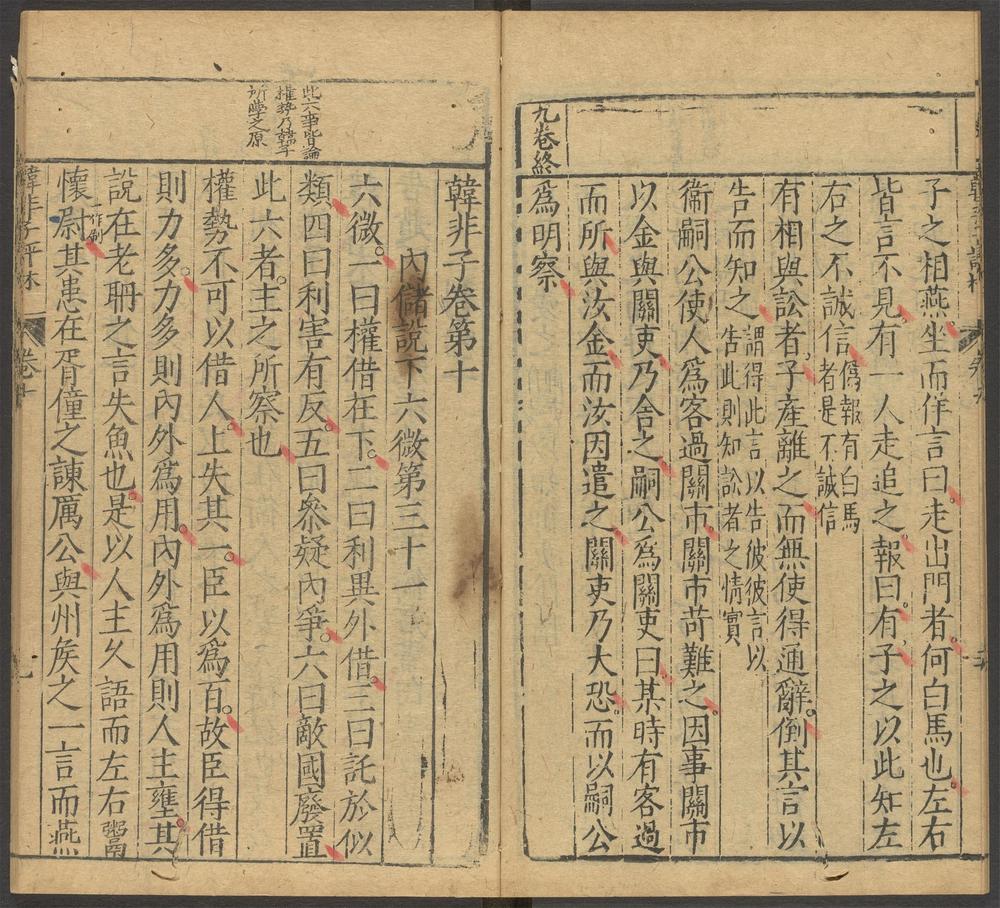 子之相燕坐而佯言曰走出門者何白馬也左右
皆言不見有一人走追之報曰有子之以此知左
右之不誠信僞報有白馬者是不誠信
有相與訟者子產離之而無使得通辭倒其言以
告而知之謂得此言以告彼彼言以告此則知訟者之情實
衞嗣公使人爲客過關市關市苛難之因事關市
以金與關吏乃舍之嗣公爲關吏曰某時有客過
而所與汝金而汝因遣之關吏乃大恐而以嗣公
爲明察
九卷終
韓非子卷第十
內儲說下六微第三十一
六微一曰權借在下二曰利異外借三曰託於似
類四曰利害有反五曰叅疑內爭六曰敵國廢置
此六者主之所察也
此六事皆論
權勢乃韓子
所學之原
權勢不可以借人上失其一臣以爲百故臣得借
則力多力多則內外爲用內外爲用則人主壅其
說在老聃之言失魚也是以人主久語而左右鬻
懷尉其患在胥僮之諫厲公與州侯之一言而燕
作刷
卷十